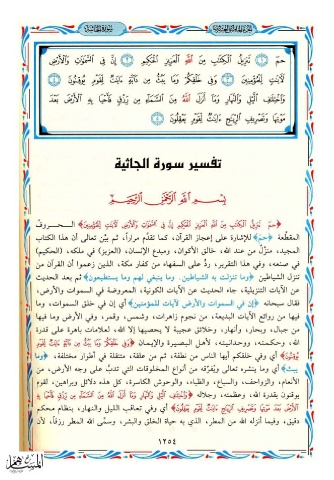 حمٓ ۝١ تَنزِيلُ ٱلْكِتَٰبِ مِنَ ٱللَّهِ ٱلْعَزِيزِ ٱلْحَكِيمِ ۝٢ إِنَّ فِى ٱلسَّمَٰوَٰتِ وَٱلْأَرْضِ
لَءَايَٰتٍ لِّلْمُؤْمِنِينَ ۝٣ وَفِى خَلْقِكُمْ وَمَا يَبُثُّ مِن دَآبَّةٍ ءَايَٰتٌ لِّقَوْمٍ يُوقِنُونَ ۝٤
وَٱخْتِلَٰفِ ٱلَّيْلِ وَٱلنَّهَارِ وَمَآ أَنزَلَ ٱللَّهُ مِنَ ٱلسَّمَآءِ مِن رِّزْقٍ فَأَحْيَا بِهِ ٱلْأَرْضَ بَعْدَ
مَوْتِهَا وَتَصْرِيفِ ٱلرِّيَٰحِ ءَايَٰتٌ لِّقَوْمٍ يَعْقِلُونَ ۝٥
تفسير سورة الجاثية
بِسْمِ ٱللَّهِ ٱلرَّحْمَٰنِ ٱلرَّحِيمِ
﴿حمٓ تَنزِيلُ ٱلْكِتَٰبِ مِنَ ٱللَّهِ ٱلْعَزِيزِ ٱلْحَكِيمِ إِنَّ فِى ٱلسَّمَٰوَٰتِ وَٱلْأَرْضِ لَءَايَٰتٍ لِّلْمُؤْمِنِينَ﴾ الحروف
المقطّعة ﴿حمٓ﴾ للإشارة على إعجاز القرآن، كما تقدّم مراراً، ثم بيّن تعالى أن هذا الكتاب
المجيد، منزّل من عند الله، خالق الأكوان، ومبدع الإنسان، (العزيز) في ملكه، (الحكيم)
في صنعه، وفي هذا التقرير، ردّ على السفهاء من كفار مكة، الذين زعموا أن القرآن من
تنزل الشياطين ﴿وما تنزلت به الشياطين. وما ينبغي لهم وما يستطيعون﴾ ثم بعد الحديث
عن الآيات التنزيلية، جاء الحديث عن الآيات الكونية، المعروضة في السموات والأرض،
فقال سبحانه ﴿إن في السموات والأرض لآيات للمؤمنين﴾ أي إن في خلق السموات، وما
فيها من روائع الآيات البديعة، من نجوم زاهرات، وشمس، وقمر، وفي الأرض وما فيها
من جبال، وبحار، وأنهار، وخلائق عجيبة لا يحصيها إلا الله، لعلامات باهرة على قدرة
الله، وحكمته، ووحدانيته، لأهل البصيرة والإيمان ﴿وَفِى خَلْقِكُمْ وَمَا يَبُثُّ مِن دَآبَّةٍ ءَايَٰتٌ لِّقَوْمٍ
يُوقِنُونَ﴾ أي وفي خلقكم أيها الناس من نطفة، ثم من علقة، متنقلة في أطوار مختلفة، ﴿وما
يبث﴾ أي وما ينشره تعالى ويُفرّقه من أنواع المخلوقات التي تدبّ على وجه الأرض، من
الأنعام، والزواحف، والسباع، والظباء، والوحوش الكاسرة، كل هذه دلائل وبراهين، لقوم
يوقنون بقدرة الله، وعظمته، وجلاله ﴿وَٱخْتِلَٰفِ ٱلَّيْلِ وَٱلنَّهَارِ وَمَآ أَنزَلَ ٱللَّهُ مِنَ ٱلسَّمَآءِ مِن رِّزْقٍ فَأَحْيَا بِهِ
ٱلْأَرْضَ بَعْدَ مَوْتِهَا وَتَصْرِيفِ ٱلرِّيَٰحِ ءَايَٰتٌ لِّقَوْمٍ يَعْقِلُونَ﴾ أي وفي تعاقب الليل والنهار، بنظام محكم
دقيق، وفيما أنزله الله من المطر، الذي به حياة الخلق والبشر، وسمَّى الله المطر رزقاً، لأن
١٢٥٤